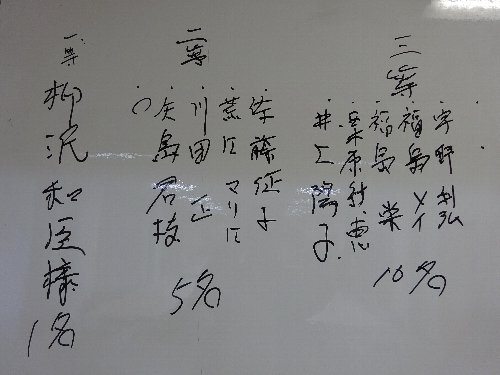 三等
宇野利弘
福島メイ
福島栄
井上陽子
10名
二等
佐藤征子
荒江マリ江
川田正
矢島君枝
5名
一等
柳沢和臣様
1名